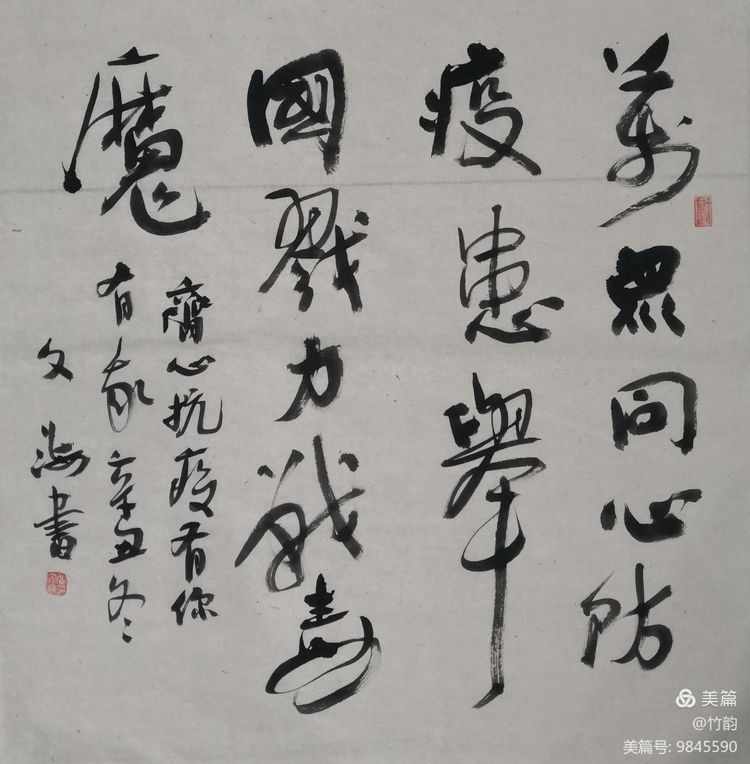 萬眾同心防
疫患舉
國戮力戰毒
魔
齊心抗疫有你
有我辛丑冬
文海書
美篇
@竹韵
美篇号: 9845590